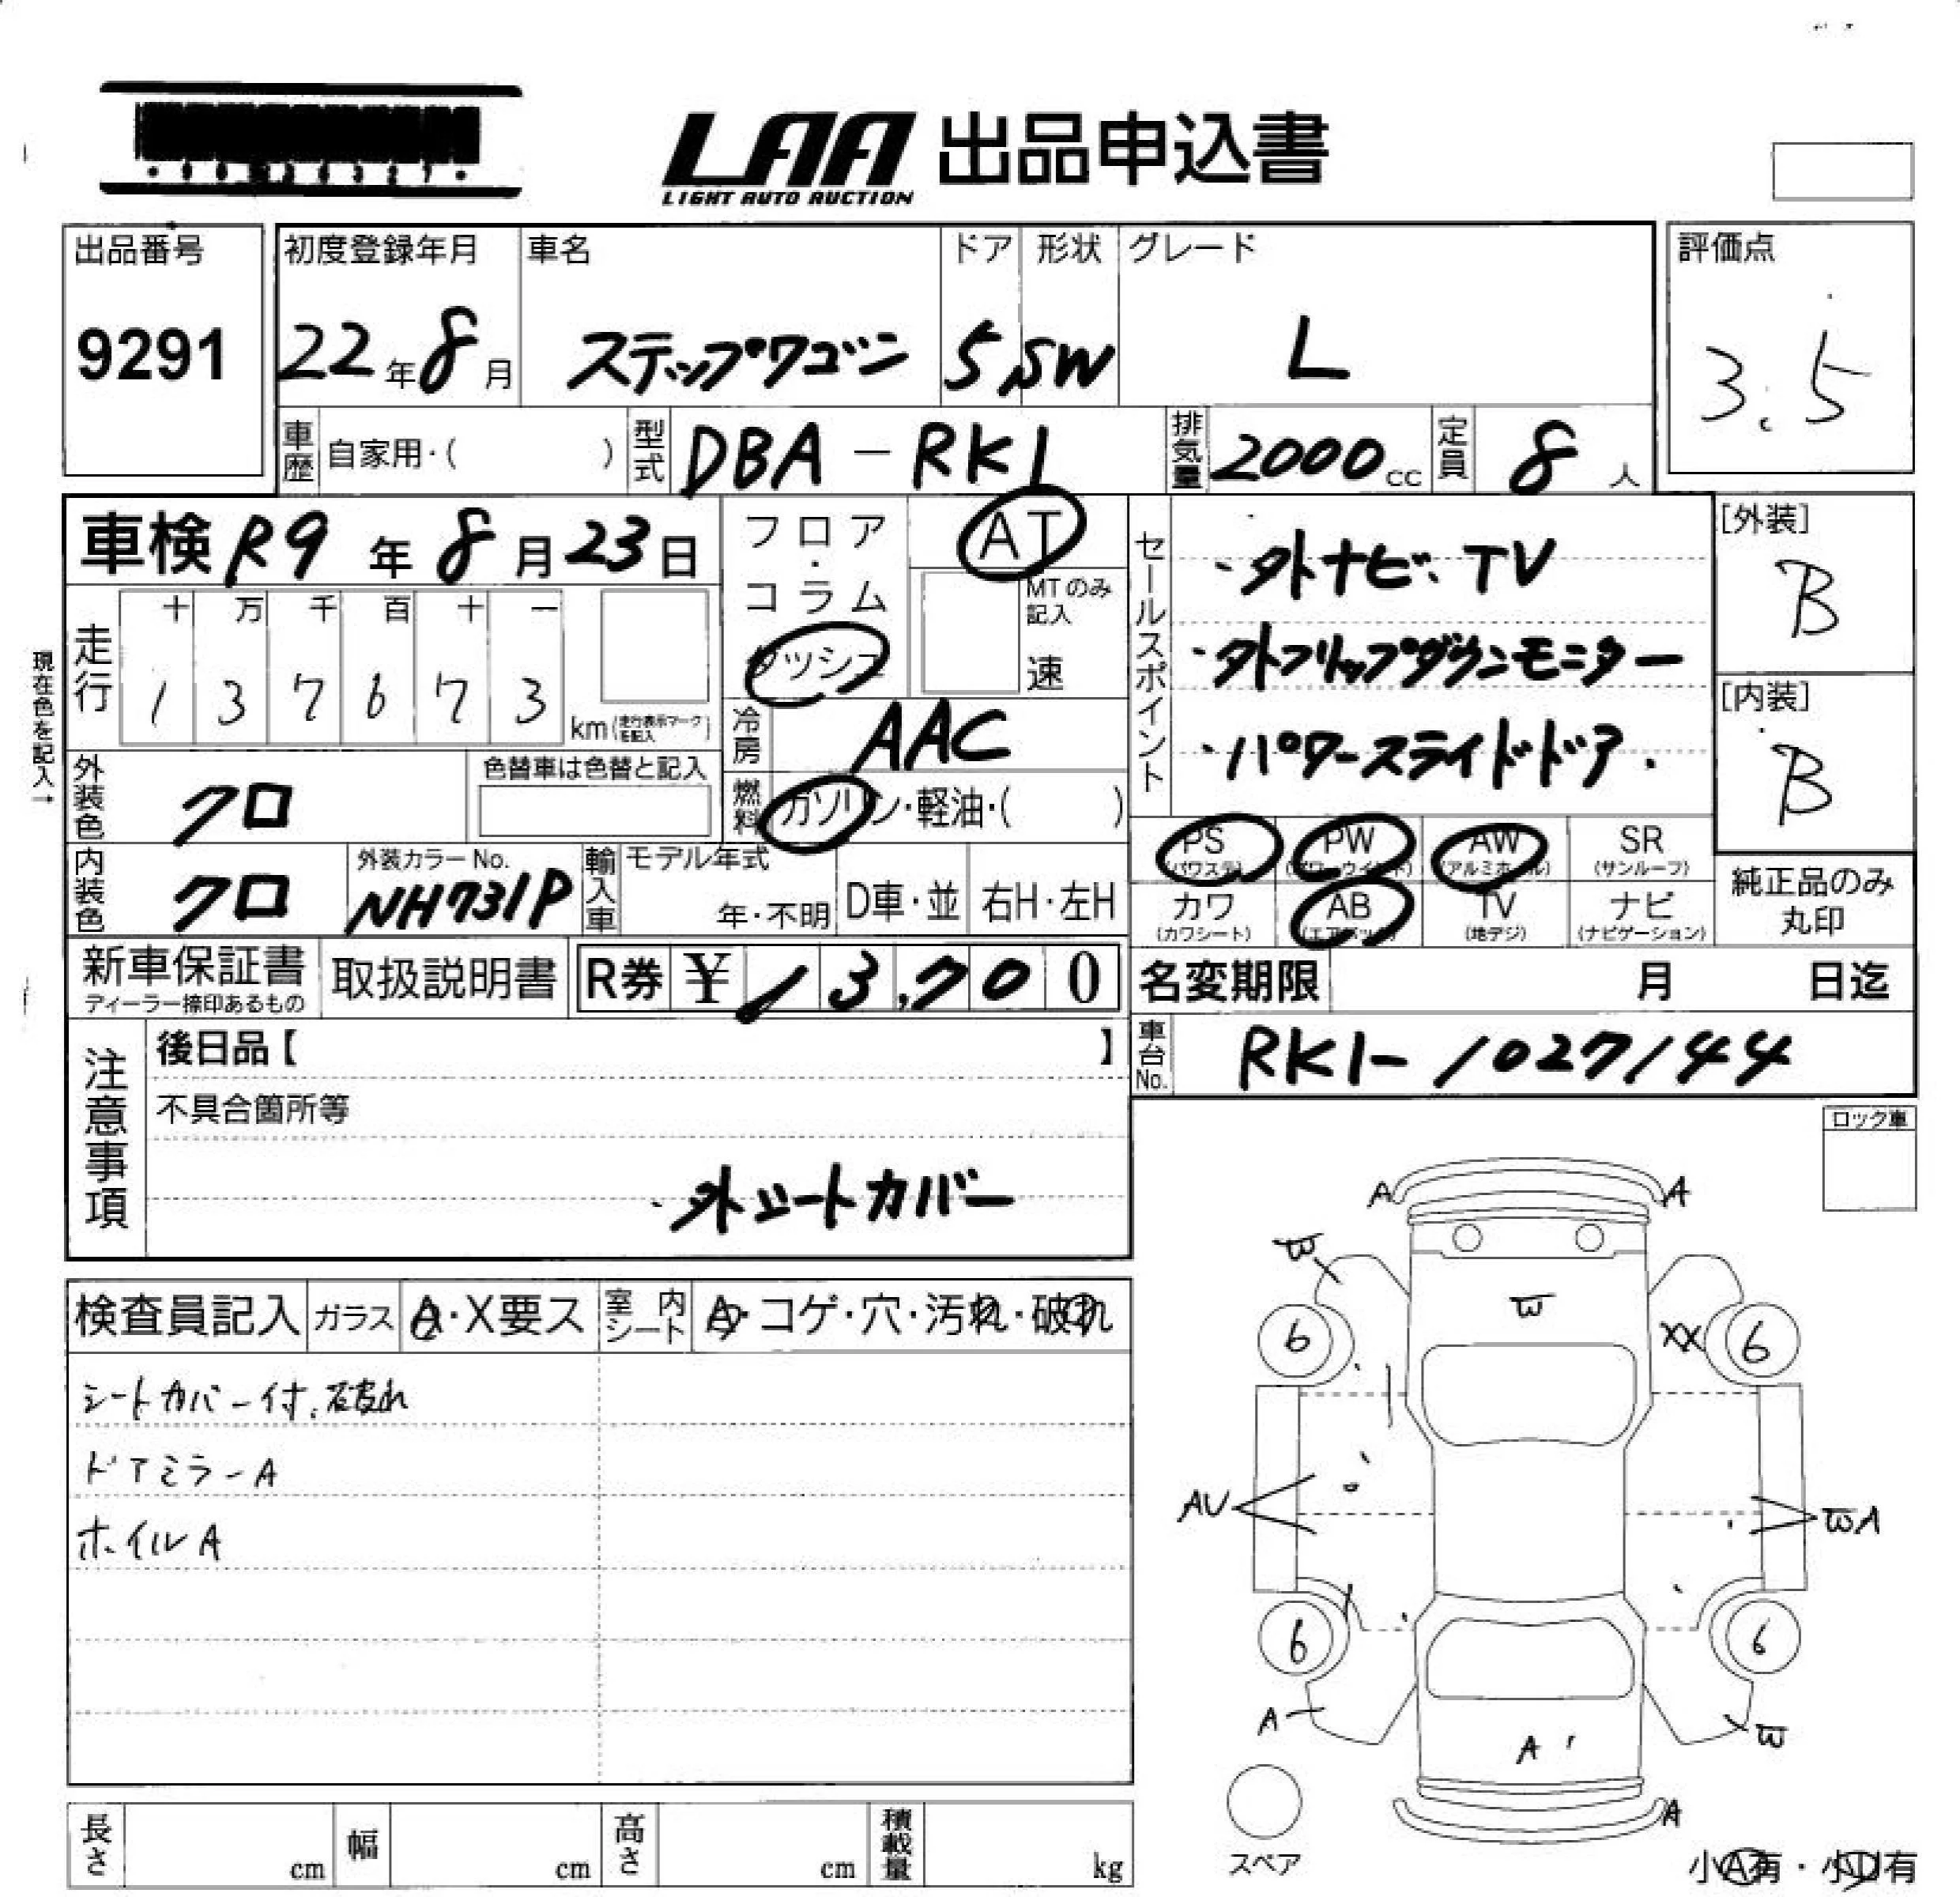 LAA 出品申込書
LIGHT AUTO AUCTION
出品番号 初度登録年月 車名 ドア 形状 グレード 評価点
9291 22年8月 ステップワゴン 5 SW L 3.5
車歴 自家用・( ) 型式 DBA-RK1 排気量 2000cc 定員 8人
車検 R9年8月23日
フロア・コラム ダッシュ
AT
MTのみ記入
速
セールスポイント
・外ナビ、TV
・外フリップダウンモニター
・パワースライドドア.
[外装]
B
[内装]
B
現在色を記入→
走行 十 万 千 百 十 一
1 3 7 6 7 3 km(走行表示マークを記入)
冷房 AAC
外装色 クロ 色替車は色替と記入
燃料 ガソリン・軽油・( )
PS (パワステ) PW (パワーウインド) AW (アルミホイール) SR (サンルーフ)
内装色 クロ 外装カラーNo. NH731P 輸入車 モデル年式 年・不明 D車・並 右H・左H
カワ (カワシート) AB (エアバック) TV (地デジ) ナビ (ナビゲーション)
純正品のみ丸印
新車保証書 ディーラー捺印あるもの 取扱説明書 R券 ¥13,700
名変期限 月 日迄
車台No. RK1-1027144
注意事項
後日品【 】
不具合箇所等
・外シートカバー
ロック車
検査員記入 ガラス A・X要ス 室内シート A・コゲ・穴・汚れ・破れ
シートカバー付、破れ
ドアミラーA
ホイルA
A A
W
W
6 XX 6
AU WA
6 6
A W
A
A
スペア
長さ cm 幅 cm 高さ cm 積載量 kg
小A有・小U有